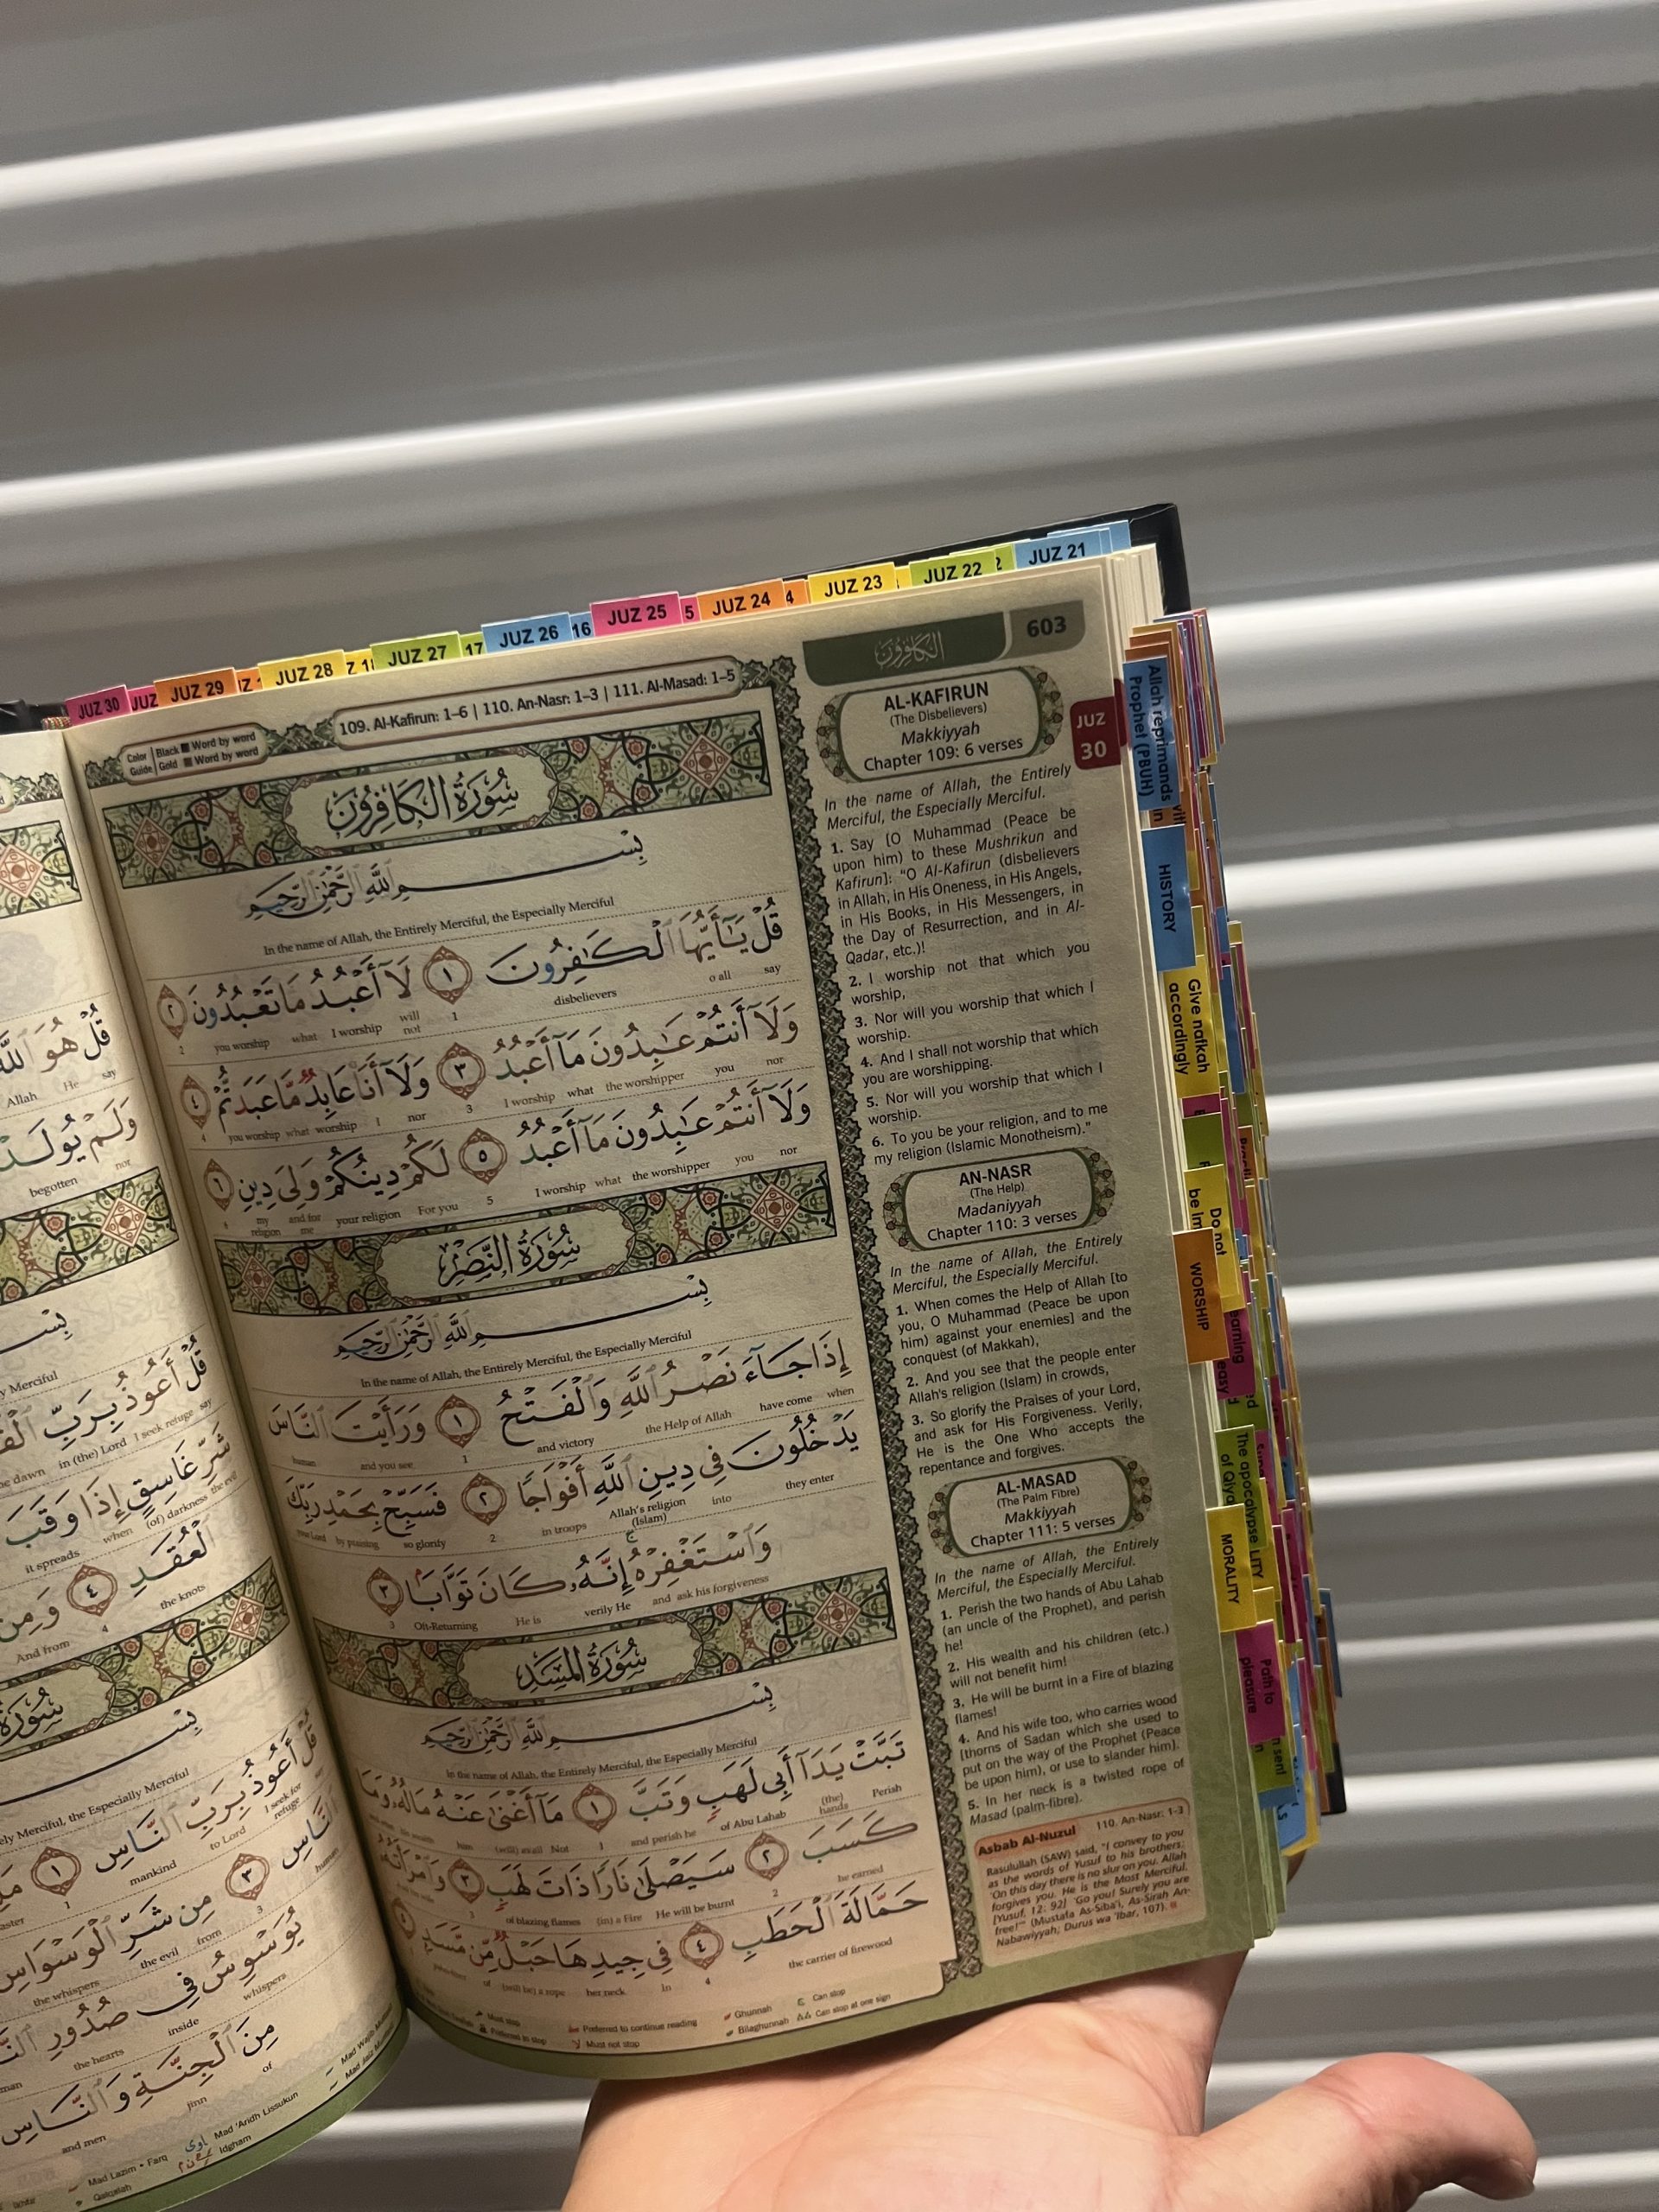 JUZ 30
JUZ
JUZ 29
JUZ 28
JUZ 27
17
JUZ 26
16
JUZ 25
5
JUZ 24
4
JUZ 23
JUZ 22
JUZ 21
الكافرون
603
Color Guide
Black Word by word
Gold Word by word
109. Al-Kafirun: 1–6 | 110. An-Nasr: 1–3 | 111. Al-Masad: 1–5
سُورَةُ الكَافِرُونَ
بِسْمِ اللَّهِ الرَّحْمَٰنِ الرَّحِيمِ
In the name of Allah, the Entirely Merciful, the Especially Merciful
قُلْ يَٰٓأَيُّهَا ٱلْكَٰفِرُونَ ١ لَآ أَعْبُدُ مَا تَعْبُدُونَ ٢
say o all disbelievers 1 will not I worship what you worship 2
وَلَآ أَنتُمْ عَٰبِدُونَ مَآ أَعْبُدُ ٣ وَلَآ أَنَا۠ عَابِدٌ مَّا عَبَدتُّمْ ٤
nor you the worshipper what I worship 3 nor I worship what you worship 4
وَلَآ أَنتُمْ عَٰبِدُونَ مَآ أَعْبُدُ ٥ لَكُمْ دِينُكُمْ وَلِىَ دِينِ ٦
nor you the worshipper what I worship 5 For you your religion and for me my religion
سُورَةُ النَّصْرِ
بِسْمِ اللَّهِ الرَّحْمَٰنِ الرَّحِيمِ
In the name of Allah, the Entirely Merciful, the Especially Merciful
إِذَا جَآءَ نَصْرُ ٱللَّهِ وَٱلْفَتْحُ ١ وَرَأَيْتَ ٱلنَّاسَ
when have come the Help of Allah and victory 1 and you see human
يَدْخُلُونَ فِى دِينِ ٱللَّهِ أَفْوَاجًا ٢ فَسَبِّحْ بِحَمْدِ رَبِّكَ
they enter into Allah's religion (Islam) in troops 2 so glorify by praising your Lord
وَٱسْتَغْفِرْهُ ۚ إِنَّهُۥ كَانَ تَوَّابًۢا ٣
and ask his forgiveness verily He He is Oft-Returning 3
سُورَةُ المَسَدِ
بِسْمِ اللَّهِ الرَّحْمَٰنِ الرَّحِيمِ
In the name of Allah, the Entirely Merciful, the Especially Merciful
تَبَّتْ يَدَآ أَبِى لَهَبٍ وَتَبَّ ١ مَآ أَغْنَىٰ عَنْهُ مَالُهُۥ وَمَا
Perish (the) hands of Abu Lahab and perish he 1 Not (will) avail him
كَسَبَ ٢ سَيَصْلَىٰ نَارًا ذَاتَ لَهَبٍ ٣ وَٱمْرَأَتُهُۥ
he earned 2 He will be burnt (in) a Fire of blazing flames 3
حَمَّالَةَ ٱلْحَطَبِ ٤ فِى جِيدِهَا حَبْلٌ مِّن مَّسَدٍۭ
the carrier of firewood 4 in her neck (will be) a rope of
Must stop
Preferred to continue reading
Must not stop
Ghunnah
Bilaghunnah
Can stop
Can stop at one sign
AL-KAFIRUN
(The Disbelievers)
Makkiyyah
Chapter 109: 6 verses
JUZ
30
In the name of Allah, the Entirely
Merciful, the Especially Merciful.
1. Say [O Muhammad (Peace be
upon him) to these Mushrikun and
Kafirun]: "O Al-Kafirun (disbelievers
in Allah, in His Oneness, in His Angels,
in His Books, in His Messengers, in
the Day of Resurrection, and in Al-
Qadar, etc.)!
2. I worship not that which you
worship,
3. Nor will you worship that which I
worship.
4. And I shall not worship that which
you are worshipping.
5. Nor will you worship that which I
worship.
6. To you be your religion, and to me
my religion (Islamic Monotheism)."
AN-NASR
(The Help)
Madaniyyah
Chapter 110: 3 verses
In the name of Allah, the Entirely
Merciful, the Especially Merciful.
1. When comes the Help of Allah [to
you, O Muhammad (Peace be upon
him) against your enemies] and the
conquest (of Makkah),
2. And you see that the people enter
Allah's religion (Islam) in crowds,
3. So glorify the Praises of your Lord,
and ask for His Forgiveness. Verily,
He is the One Who accepts the
repentance and forgives.
AL-MASAD
(The Palm Fibre)
Makkiyyah
Chapter 111: 5 verses
In the name of Allah, the Entirely
Merciful, the Especially Merciful.
1. Perish the two hands of Abu Lahab
(an uncle of the Prophet), and perish
he!
2. His wealth and his children (etc.)
will not benefit him!
3. He will be burnt in a Fire of blazing
flames!
4. And his wife too, who carries wood
[thorns of Sadan which she used to
put on the way of the Prophet (Peace
be upon him), or use to slander him].
5. In her neck is a twisted rope of
Masad (palm-fibre).
Asbab Al-Nuzul 110. An-Nasr: 1-3
Rasulullah (SAW) said, "I convey to you
as the words of Yusuf to his brothers:
'On this day there is no slur on you. Allah
forgives you. He is the Most Merciful.
[Yusuf, 12: 92] 'Go you! Surely you are
free!'" (Mustafa As-Siba'i, As-Sirah An-
Nabawiyyah; Durus wa 'Ibar, 107).
Allah reprimands
Prophet (PBUH)
HISTORY
Give nafkah
accordingly
Do not
WORSHIP
The apocalypse
MORALITY
Path to
pleasure
قُلْ هُوَ
say He Allah
وَلَمْ يُولَدْ
nor begotten
قُلْ أَعُوذُ بِرَبِّ
say I seek refuge in (the) Lord
شَرِّ غَاسِقٍ إِذَا وَقَبَ
the evil (of) darkness when it spreads
ٱلْعُقَدِ ٤ وَمِن
the knots 4 And from
قُلْ أَعُوذُ بِرَبِّ ٱلنَّاسِ ١
I seek for refuge to Lord mankind 1
ٱلنَّاسِ ٣ مِن شَرِّ ٱلْوَسْوَاسِ
human 3 from the evil the whispers
يُوَسْوِسُ فِى صُدُورِ
whispers inside the hearts
مِنَ ٱلْجِنَّةِ وَٱلنَّاسِ
of jinn and men
Mad Lazim • Farq
Qalqalah
Mad 'Aridh Lissukun
Idgham